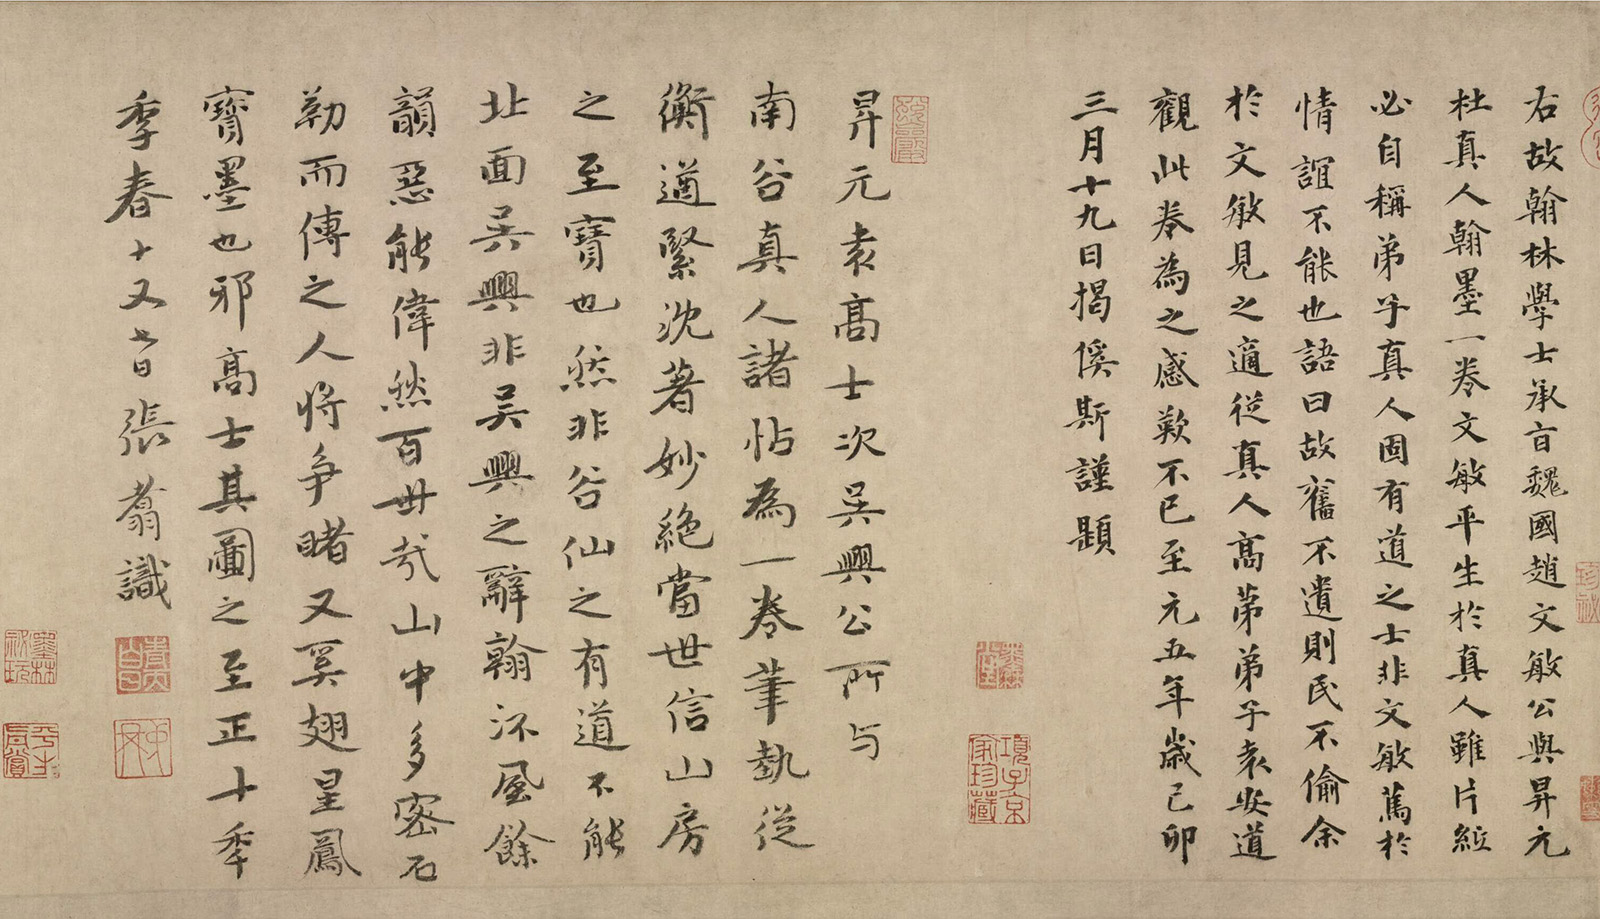 右故翰林學士承旨魏國趙文敏公與昇元
杜真人翰墨一卷文敏平生於真人雖片紙
必自稱弟子真人固有道之士非文敏篤於
情誼不能也語曰故舊不遺則民不偷余
於文敏見之適從真人高弟弟子袁安道
觀此卷為之感歎不已至元五年歲己卯
三月十九日揭傒斯謹題
昇元袁高士次吳興公所与
南谷真人諸帖為一卷筆執從
衡遒緊沈著妙絕當世信山房
之至寶也然非谷仙之有道不能
北面吳興非吳興之辭翰冰風餘
韻惡能偉然百世哉山中多密石
勒而傳之人將爭睹又奚翅星鳳
寶墨也邪高士其圖之至正十年
季春十又七日張翥識
項子京
家珍藏
墨林
祕玩
平生
真賞